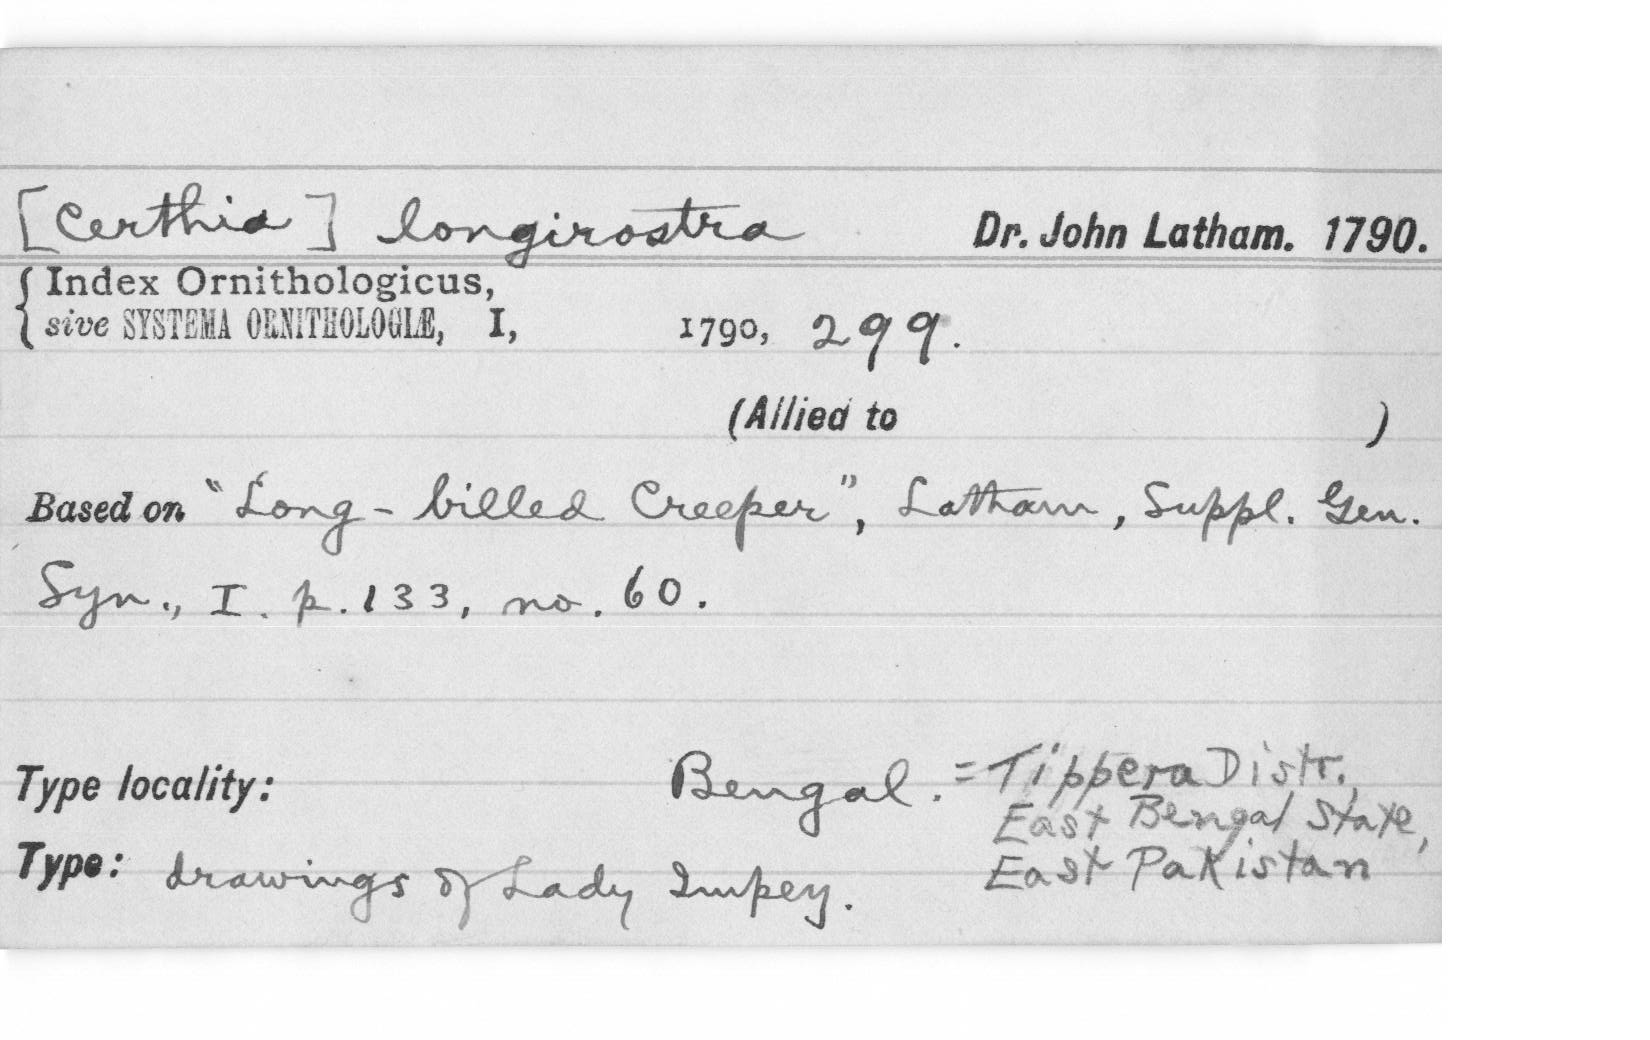 [Certhia] longirostra Dr. John Latham. 1790.
{ Index Ornithologicus,
sive SYSTEMA ORNITHOLOGIÆ, I, 1790, 299.
(Allied to )
Based on "Long-billed Creeper", Latham, Suppl. Gen.
Syn., I. p. 133, no. 60.
Type locality: Bengal. = Tippera Distr.,
East Bengal State,
East Pakistan
Type: drawings of Lady Impey.